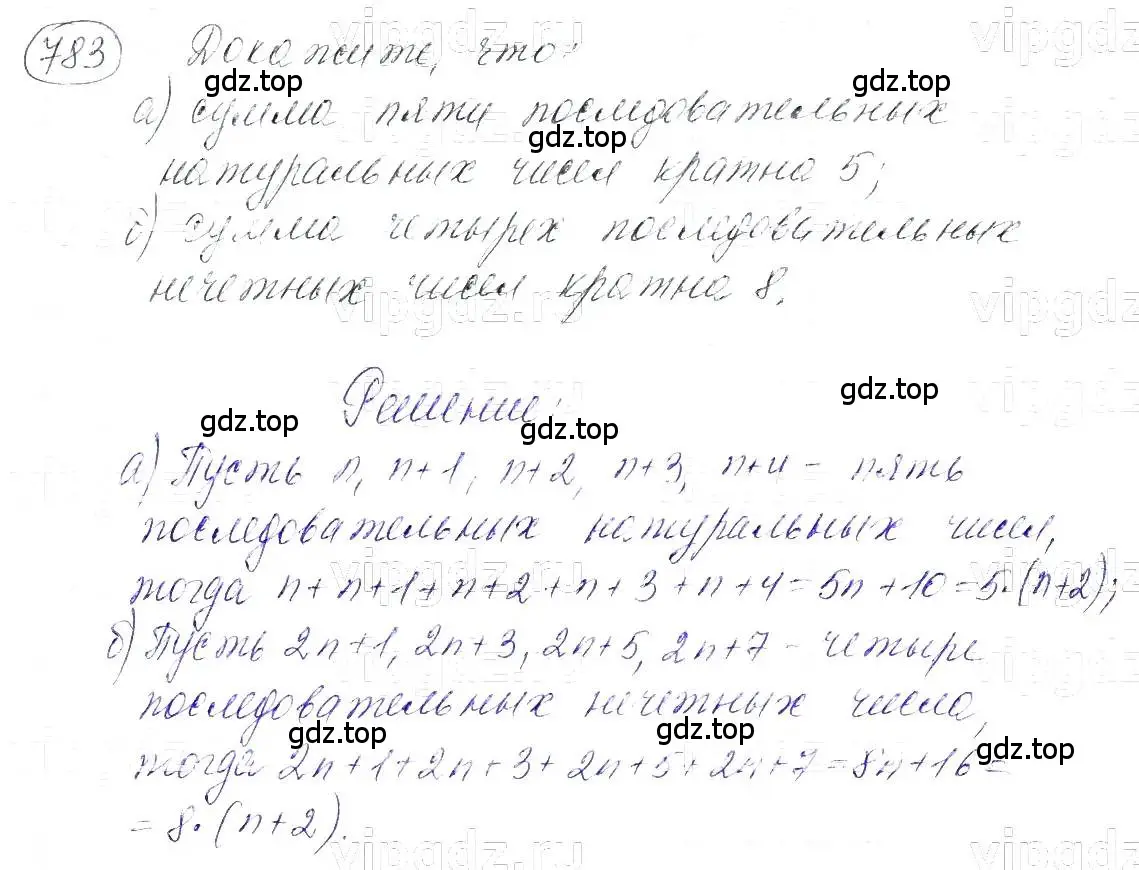 783 Докажите, что:
gdz.top
а) сумма пяти последовательных
gdz.top
натуральных чисел кратна 5;
б) сумма четырех последовательных
нечетных чисел кратна 8.
vipgdz.ru
Решение:
gdz.top gdz.top gdz.top
а) Пусть n, n+1, n+2, n+3, n+4 - пять
последовательных натуральных чисел,
тогда n+n+1+n+2+n+3+n+4=5n+10=5·(n+2);
б) Пусть 2n+1, 2n+3, 2n+5, 2n+7 - четыре
последовательных нечетных числа,
gdz.top gdz.top gdz.top
тогда 2n+1+2n+3+2n+5+2n+7=8n+16=
=8·(n+2).
vipgdz.ru vipgdz.ru